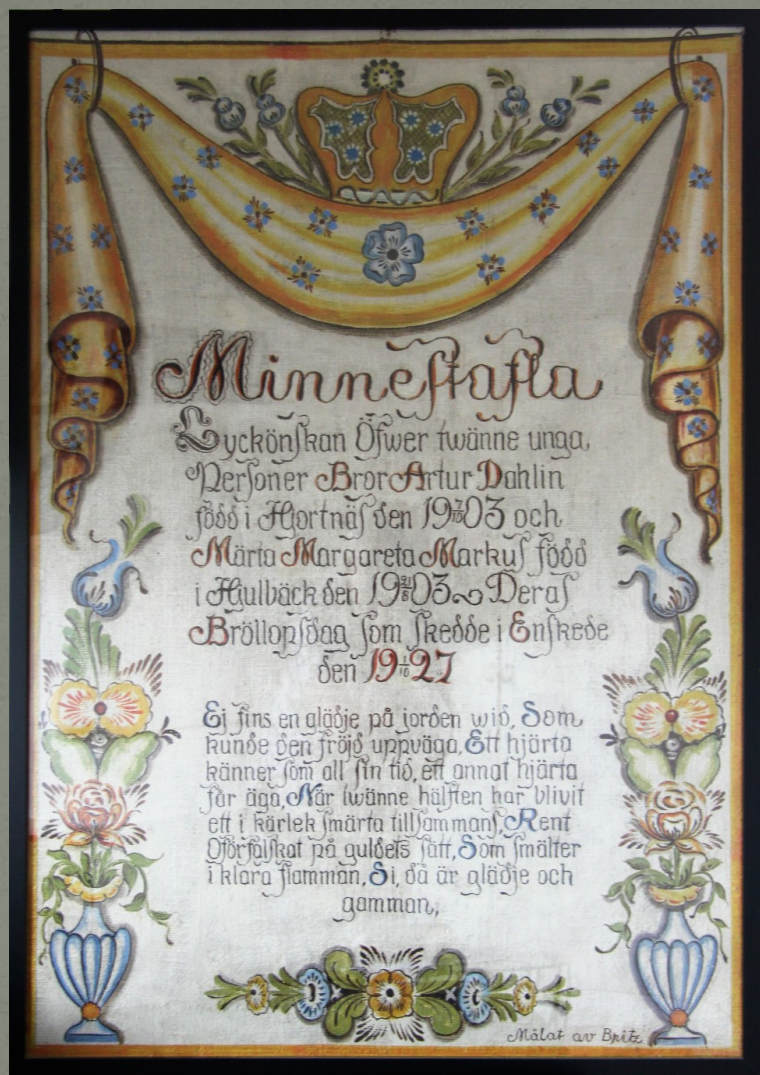 Minnestafla
Lyckönskan Öfwer twänne unga,
Personer Bror Artur Dahlin
född i Hjortnäs den 19 7/10 03 och
Märta Margareta Markus född
i Hjulbäck den 19 03 ~ Deras
Bröllopsdag som skedde i Enskede
den 19 1/10 27
Ej fins en glädje på jorden wid, Som
kunde den fröjd uppväga, Ett hjärta
känner som all sin tid, ett annat hjärta
får äga, När twänne hälften har blivit
ett i kärlek smärta tillsammans, Rent
Oförfalskat på guldets sätt, Som smälter
i klara flamman, Si, då är glädje och
gamman,
Målat av Britz